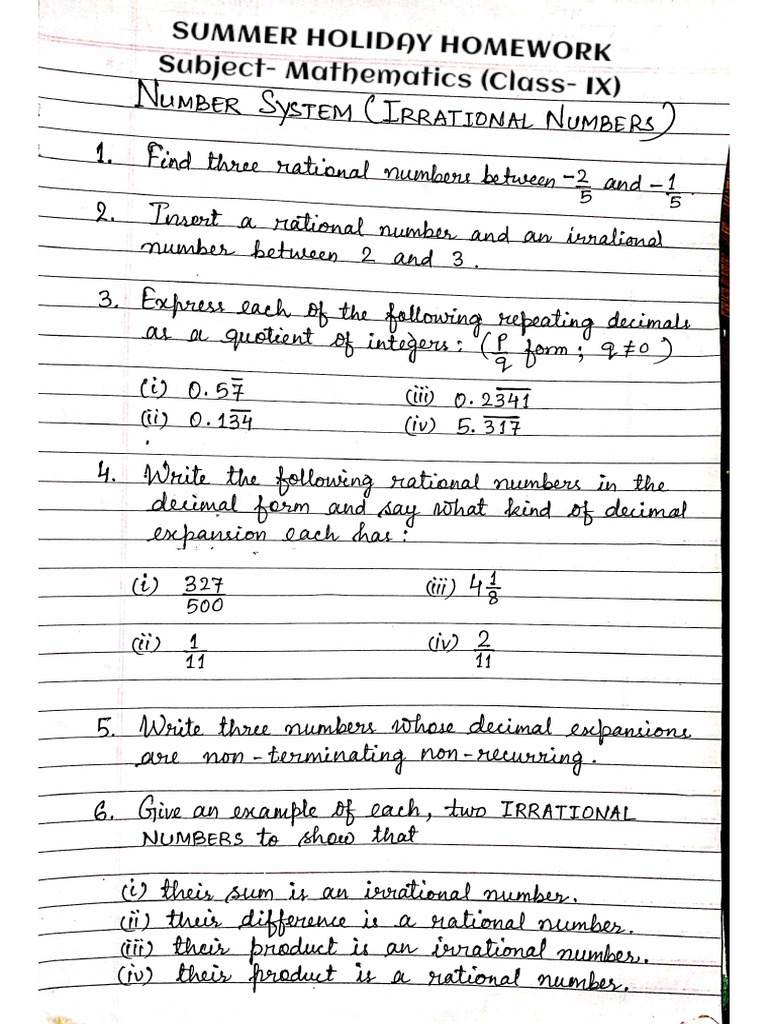 SUMMER HOLIDAY HOMEWORK
Subject- Mathematics (Class- IX)
NUMBER SYSTEM (IRRATIONAL NUMBERS)
1. Find three rational numbers between -2/5 and -1/5.
2. Insert a rational number and an irrational
number between 2 and 3.
3. Express each of the following repeating decimals
as a quotient of integers: (p/q form; q≠0)
(i) 0.57̅ (iii) 0.23̅4̅1̅
(ii) 0.13̅4̅ (iv) 5.3̅1̅7̅
4. Write the following rational numbers in the
decimal form and say what kind of decimal
expansion each has:
(i) 327/500 (iii) 4 1/8
(ii) 1/11 (iv) 2/11
5. Write three numbers whose decimal expansions
are non-terminating non-recurring.
6. Give an example of each, two IRRATIONAL
NUMBERS to show that
(i) their sum is an irrational number.
(ii) their difference is a rational number.
(iii) their product is an irrational number.
(iv) their product is a rational number.